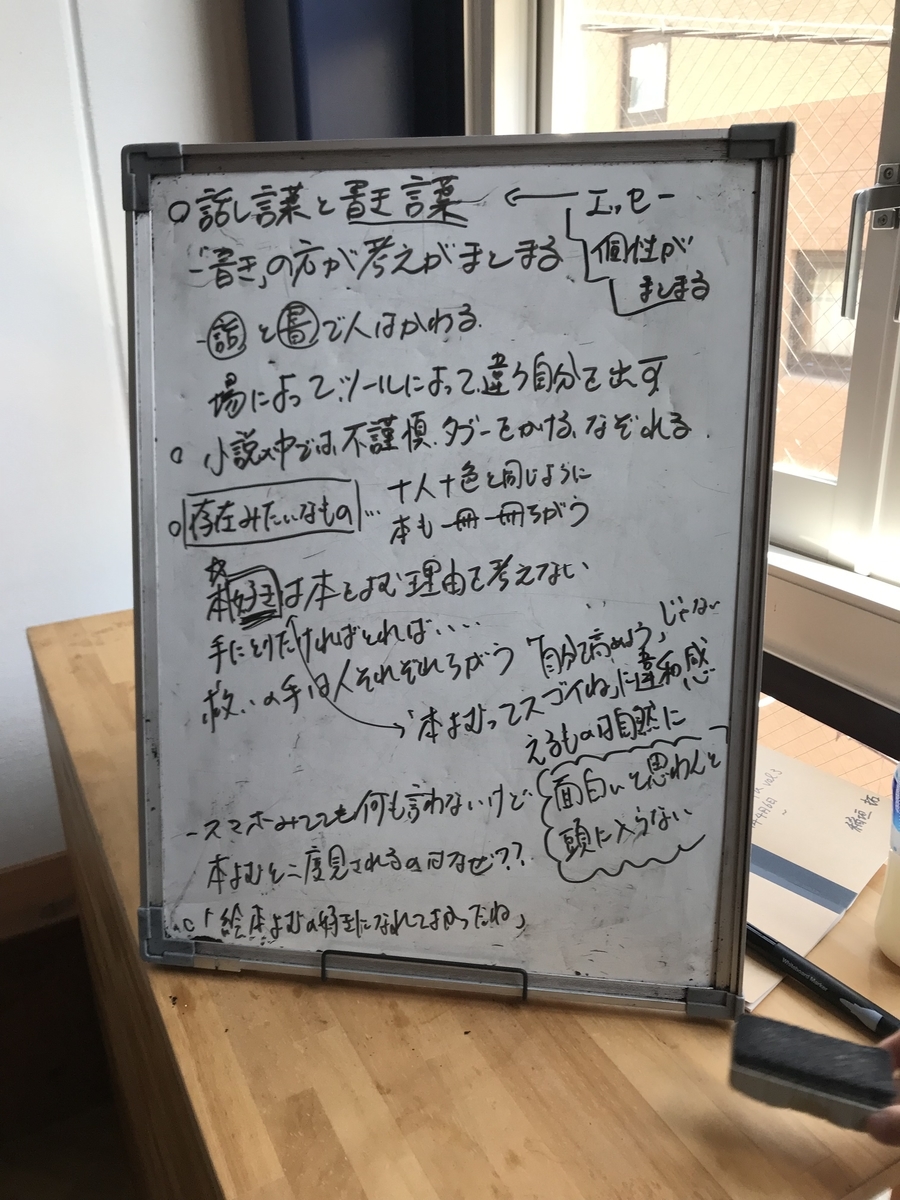 ○話し言葉と書き言葉 ← エッセー
個性が
まとまる
-「書き」の方が考えがまとまる
-話と書で人はかわる.
場によって、ツールによって、違う自分を出す
○小説の中では、不謹慎、タブーをかける、なぞれる.
○存在みたいなもの…
十人十色と同じように
本も一冊一冊ちがう
本好きは本をよむ理由を考えない
手にとりたければとれば‥‥
救いの手は人それぞれちがう
「自分を高めよう」じゃない
「本よむってスゴイね」に違和感
えるものは自然に
面白いと思わんと
頭に入らない
-スマホみてても何も言わないけど
本よむと二度見されるのはなぜ??
○「絵本よむの好きになれてよかったね」
Whiteboard Marker